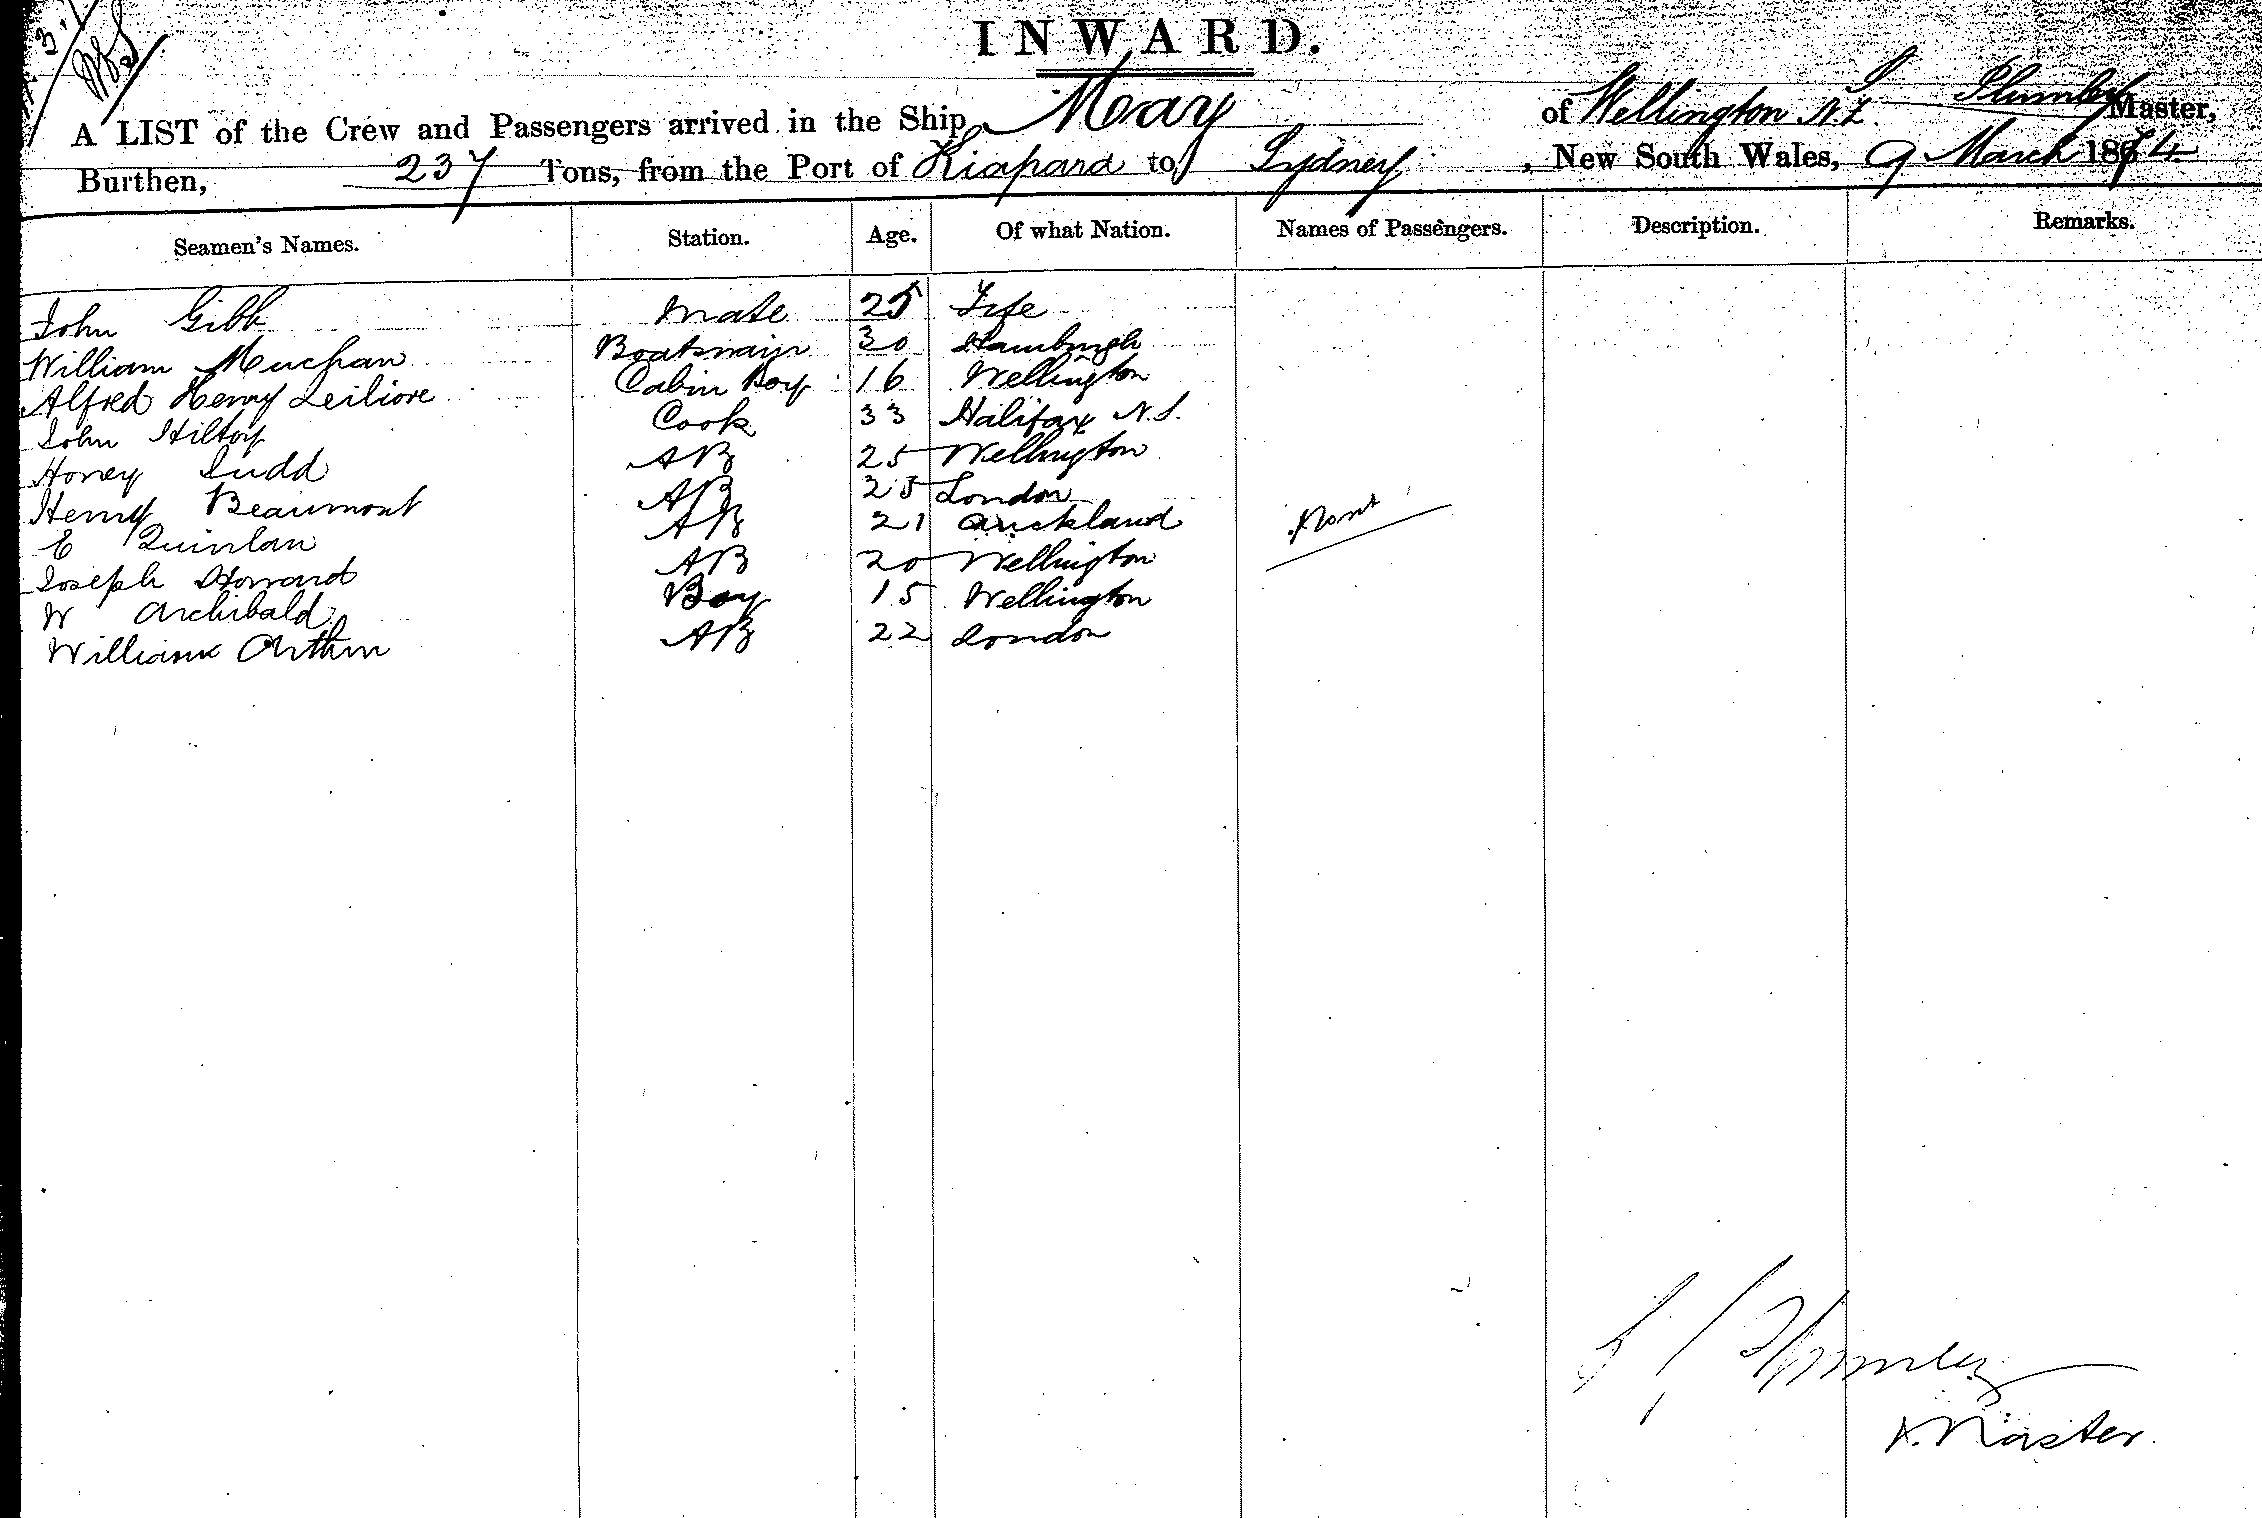 INWARD.
A LIST of the Crew and Passengers arrived in the Ship Moay of Wellington N.Z. S Plumley Master,
Burthen, 237 Tons, from the Port of Kiapara to Sydney, New South Wales, 9 March 1874
Seamen's Names. Station. Age. Of what Nation. Names of Passengers. Description. Remarks.
John Gibb Mate 25 Fife
William Muchan Boatswain 30 Hamburgh
Alfred Henry Cabin Boy 16 Wellington
John Hiltoy Cook 33 Halifax N.S.
Honey Judd AB 25 Wellington
Henry Beaumont AB 25 London
E Quinlan AB 21 Auckland
Joseph Howard AB 20 Wellington
W Archibald Boy 15 Wellington
William Arthur AB 22 London
None
Plumley
Master.